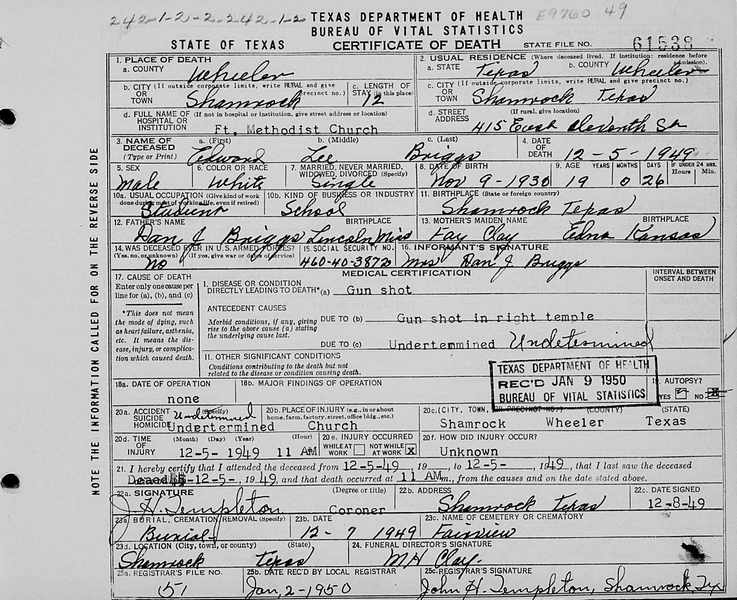 242-1-2-2-242-1-2 TEXAS DEPARTMENT OF HEALTH E9760 49
BUREAU OF VITAL STATISTICS
STATE OF TEXAS CERTIFICATE OF DEATH STATE FILE NO. 61538
NOTE THE INFORMATION CALLED FOR ON THE REVERSE SIDE
1. PLACE OF DEATH
a. COUNTY Wheeler
2. USUAL RESIDENCE (Where deceased lived. If institution: residence before admission).
a. STATE Texas b. COUNTY Wheeler
b. CITY (If outside corporate limits, write RURAL and give precinct no.) OR TOWN Shamrock
c. LENGTH OF STAY (in this place) 12
c. CITY (If outside corporate limits, write RURAL and give precinct no.) OR TOWN Shamrock Texas
d. FULL NAME OF HOSPITAL OR INSTITUTION (If not in hospital or institution, give street address or location)
Ft. Methodist Church
d. STREET ADDRESS (If rural, give location)
415 East Eleventh St
3. NAME OF DECEASED (Type or Print) a. (First) b. (Middle) c. (Last)
Edward Lee Briggs
4. DATE OF DEATH 12-5-1949
5. SEX Male
6. COLOR OR RACE White
7. MARRIED, NEVER MARRIED, WIDOWED, DIVORCED (Specify) Single
8. DATE OF BIRTH Nov 9-1930
9. AGE YEARS MONTHS DAYS IF UNDER 24 HRS. Hours Min
19 0 26
10a. USUAL OCCUPATION (Give kind of work done during most of working life, even if retired) Student
10b. KIND OF BUSINESS OR INDUSTRY School
11. BIRTHPLACE (State or foreign country) Shamrock Texas
12. FATHER'S NAME BIRTHPLACE
Dan J. Briggs Lincoln Miss
13. MOTHER'S MAIDEN NAME BIRTHPLACE
Fay Clay Edna Kansas
14. WAS DECEASED EVER IN U.S. ARMED FORCES? (Yes, no, or unknown) (If yes, give war or dates of service) no
15. SOCIAL SECURITY NO. 460-40-3873
16. INFORMANT'S SIGNATURE Mrs Dan J Briggs
MEDICAL CERTIFICATION
17. CAUSE OF DEATH
Enter only one cause per line for (a), (b), and (c)
*This does not mean the mode of dying, such as heart failure, asthenia, etc. It means the disease, injury, or complication which caused death.
I. DISEASE OR CONDITION DIRECTLY LEADING TO DEATH*(a) Gun shot
INTERVAL BETWEEN ONSET AND DEATH
ANTECEDENT CAUSES
Morbid conditions, if any, giving rise to the above cause (a) stating the underlying cause last.
DUE TO (b) Gun shot in right temple
DUE TO (c) Undertermined Undetermined
11. OTHER SIGNIFICANT CONDITIONS
Conditions contributing to the death but not related to the disease or condition causing death.
TEXAS DEPARTMENT OF HEALTH
REC'D JAN 9 1950
BUREAU OF VITAL STATISTICS
18a. DATE OF OPERATION none
18b. MAJOR FINDINGS OF OPERATION
19. AUTOPSY? YES NO X
20a. ACCIDENT SUICIDE HOMICIDE Undetermined
Undertermined
20b. PLACE OF INJURY (e.g., in or about home, farm, factory, street, office bldg., etc.) Church
20c. (CITY, TOWN, OR PRECINCT NO.) (COUNTY) (STATE)
Shamrock Wheeler Texas
20d. TIME OF INJURY (Month) (Day) (Year) (Hour)
12-5-1949 11 AM
20e. INJURY OCCURRED WHILE AT WORK NOT WHILE AT WORK X
20f. HOW DID INJURY OCCUR? Unknown
21. I hereby certify that I attended the deceased from 12-5-49 19 to 12-5- 1949, that I last saw the deceased
Dead 12-5-, 1949 and that death occurred at 11 AM., from the causes and on the date stated above.
22a. SIGNATURE (Degree or title) J. H. Templeton Coroner
22b. ADDRESS Shamrock Texas
22c. DATE SIGNED 12-8-49
23a. BURIAL, CREMATION, REMOVAL (Specify) Burial
23b. DATE 12-7 1949
23c. NAME OF CEMETERY OR CREMATORY Fairview
23d. LOCATION (City, town, or county) (State) Shamrock Texas
24. FUNERAL DIRECTOR'S SIGNATURE M H Clay.
25a. REGISTRAR'S FILE NO. 151
25b. DATE REC'D BY LOCAL REGISTRAR Jan, 2-1950
25c. REGISTRAR'S SIGNATURE John H. Templeton, Shamrock Tex